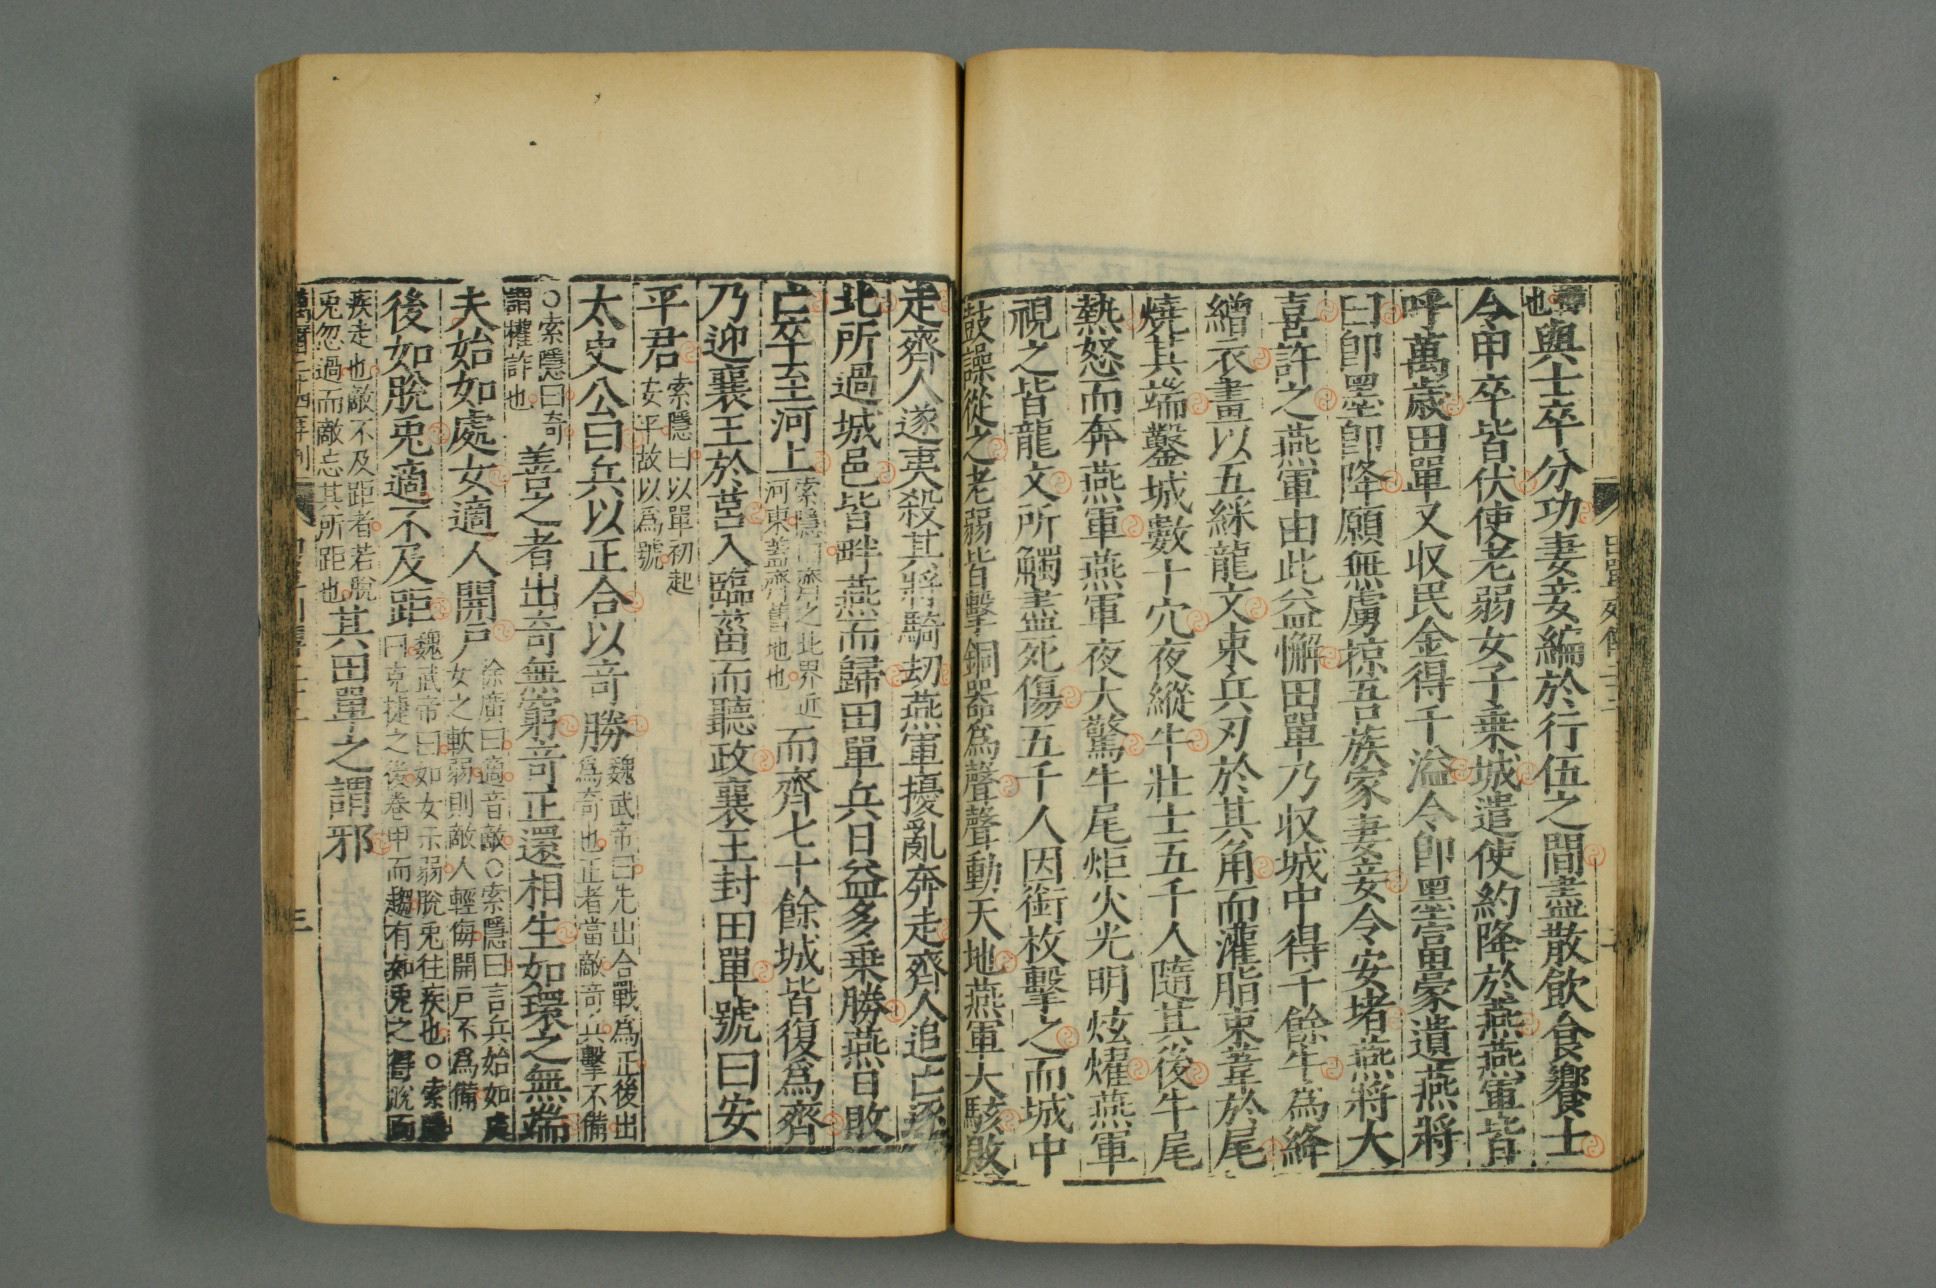 也與士卒分功妻妾編於行伍之間盡散飲食饗士
令甲卒皆伏使老弱女子乗城遣使約降於燕燕軍皆
呼萬歳田單又収民金得千溢令卽墨富豪遺燕將
曰卽墨卽降願無虜掠吾族家妻妾令安堵燕將大
喜許之燕軍由此益懈田單乃収城中得千餘牛為絳
繒衣畫以五綵龍文束兵刃於其角而灌脂束葦於尾
燒其端鑿城數十穴夜縱牛壯士五千人隨其後牛尾
熱怒而奔燕軍燕軍夜大驚牛尾炬火光明炫燿燕軍
視之皆龍文所觸盡死傷五千人因銜枚擊之而城中
鼓譟從之老弱皆擊銅器為聲聲動天地燕軍大駭敗
走齊人遂夷殺其將騎劫燕軍擾亂奔走齊人追亡逐
北所過城邑皆畔燕而歸田單兵日益多乗勝燕日敗
亡卒至河上
索隱曰齊之北界近
河東蓋齊舊地也
而齊七十餘城皆復為齊
乃迎襄王於莒入臨菑而聽政襄王封田單號曰安
平君
索隱曰以單初起
安平故以為號
太史公曰兵以正合以奇勝
魏武帝曰先出合戰為正後出
為奇也正者當敵奇兵擊不備
○索隱曰奇
謂權詐也
善之者出奇無窮奇正還相生如環之無端
夫始如處女適人開戶
徐廣曰適音敵○索隱曰言兵始如處
女之軟弱則敵人輕侮開戶不為備
後如脫兎適不及距
魏武帝曰如女示弱脫兎往疾也○索隱
曰克捷之後卷甲而趨有如兎之得脫而
疾走也敵不及距者若脫
兎忽過而敵忘其所距也
其田單之謂邪
萬曆二十四年刊
三